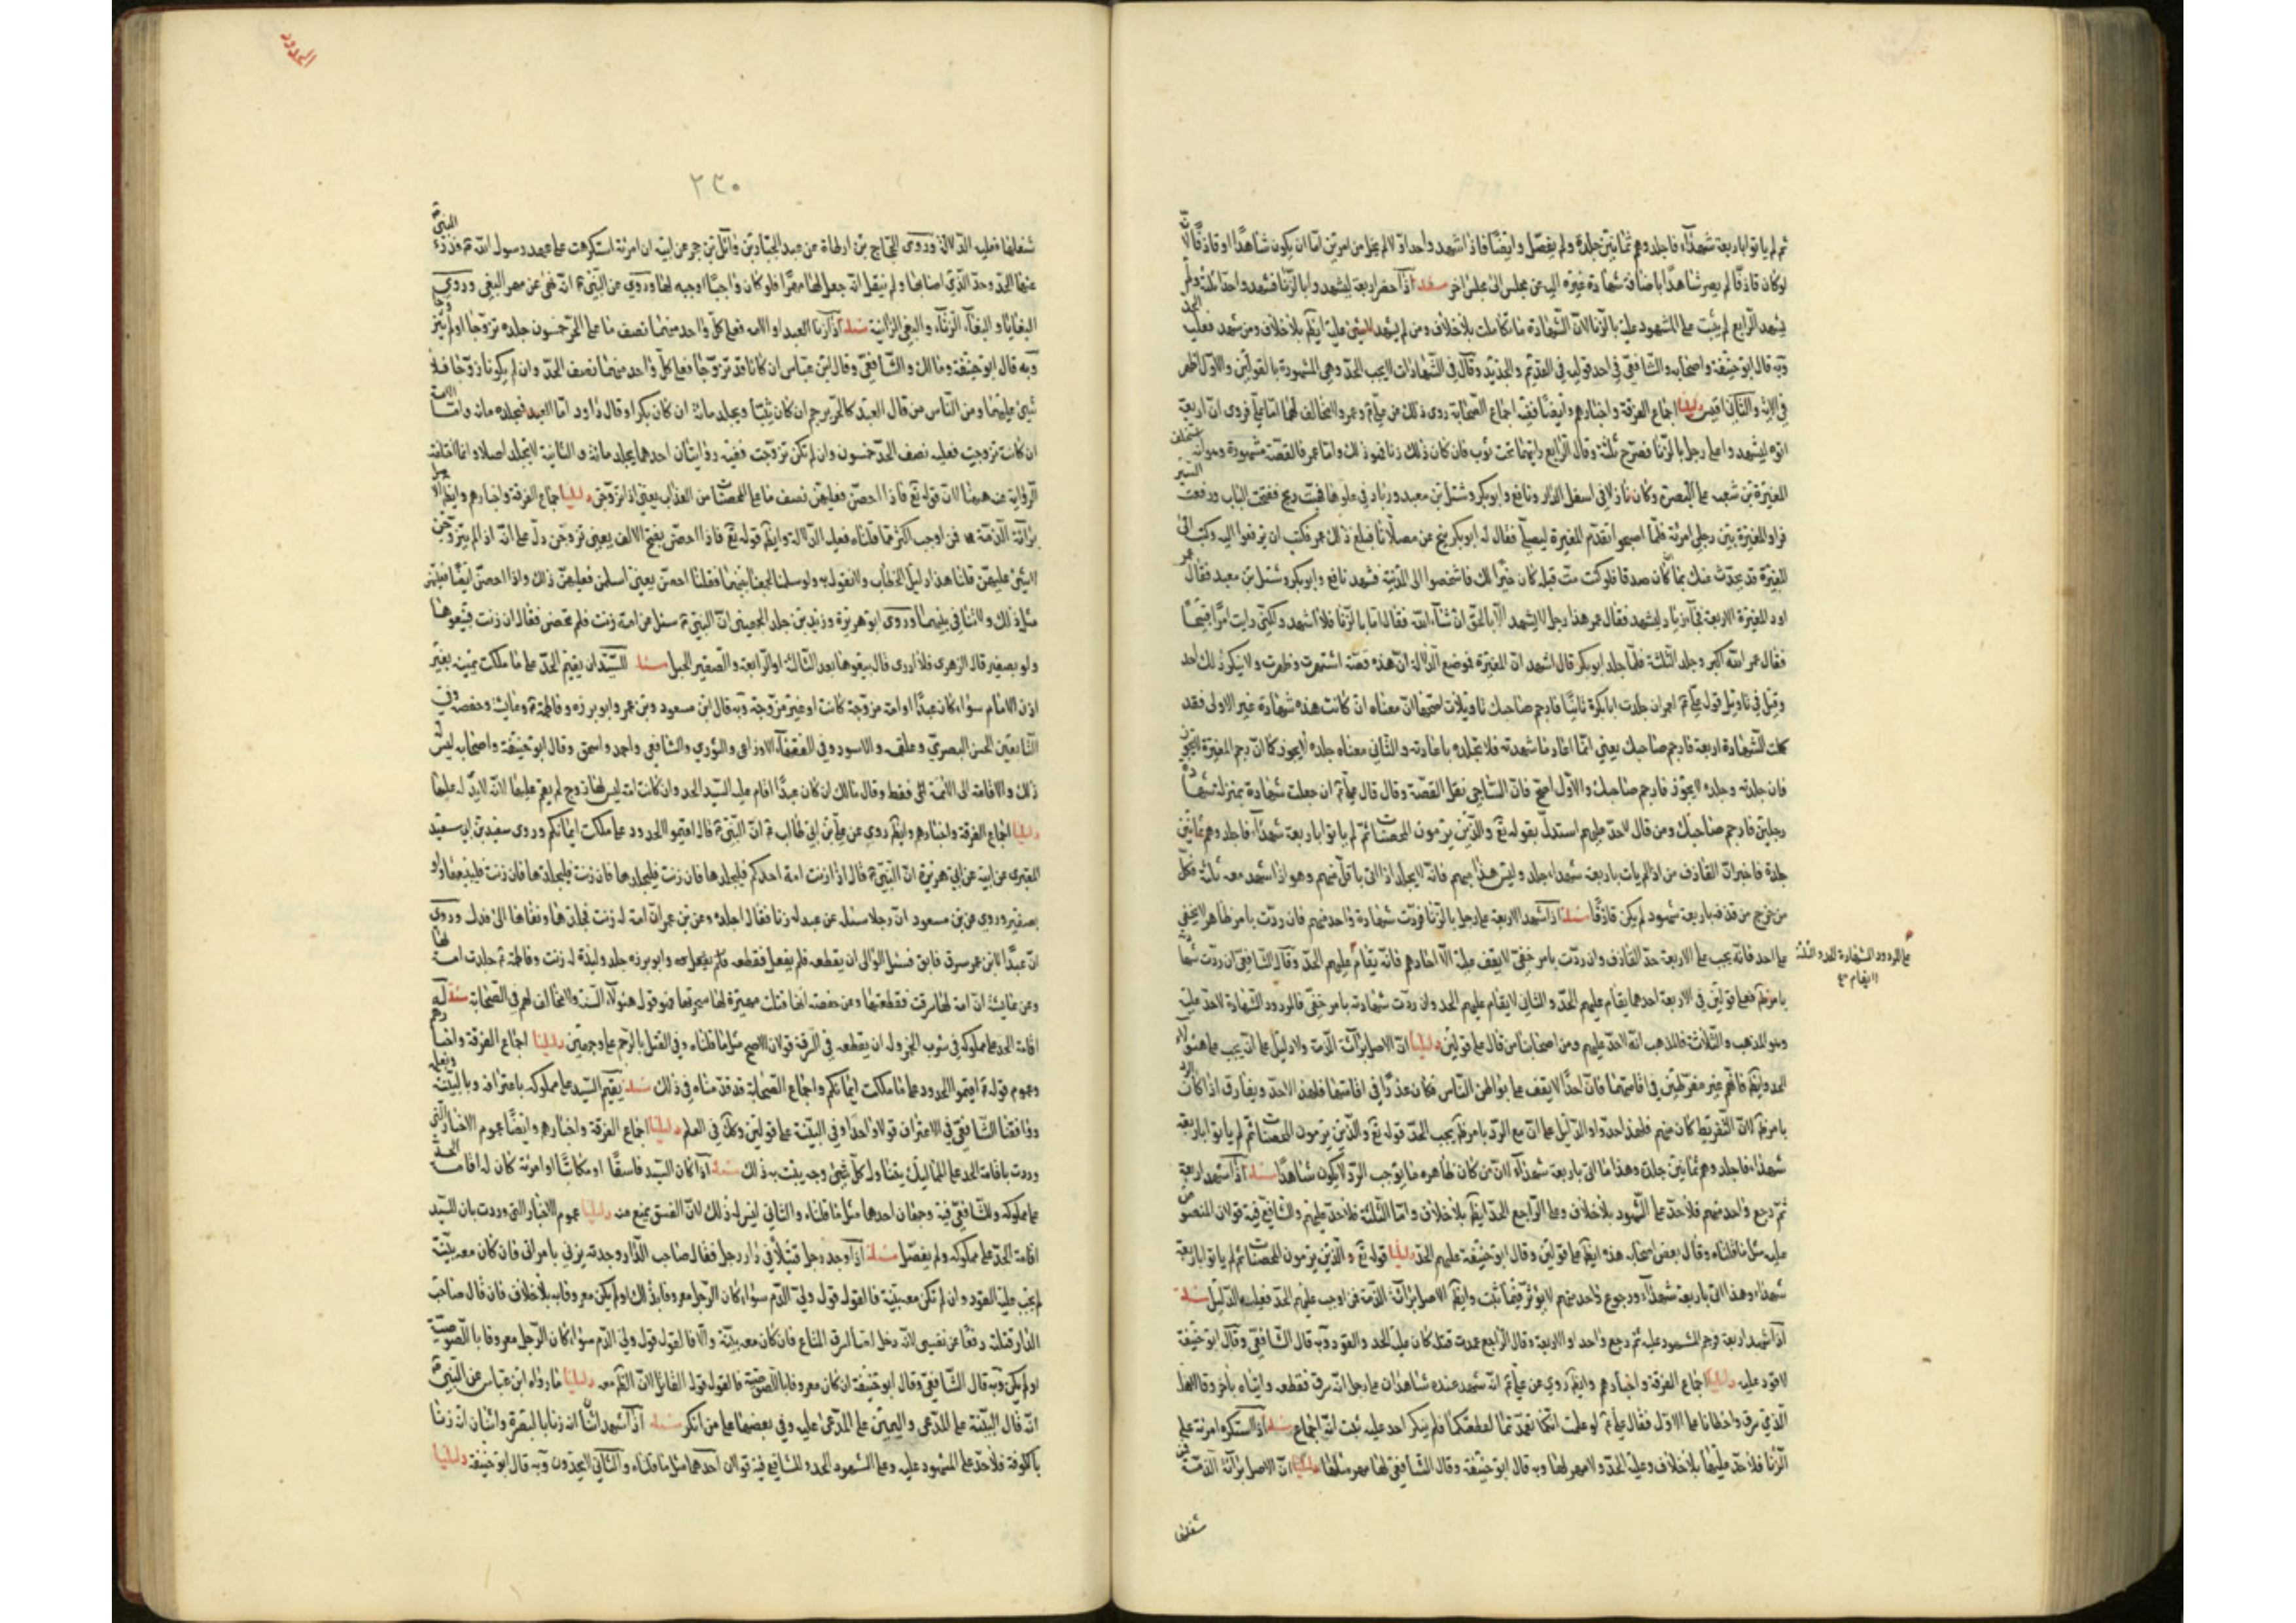 ثم لم ياتوا باربعة شهداء فاجلدوهم ثمانين جلدة ولم يفصل وايضا فاذا شهد واحد اولا لم يخل من امرين اما ان يكون شاهدا او قاذفا لا
لو كان قاذفا لم يصر شاهدا باضافة شهادة غيره اليه من مجلس الى مجلس اخر مسئلة اذا حضر اربعة ليشهدوا بالزنا فشهد واحد او ثلثة ولم
يشهد الرابع لم يثبت على المشهود عليه بالزنا لان الشهادة ما تكاملت بلا خلاف ومن لم يشهد لا شئ عليه ايضا بلا خلاف ومن شهد فعليه الحد
وبه قال ابو حنيفة واصحابه والشافعي في احد قوليه في القديم والجديد وقال في الشهادات لا يجب الحد وهي المشهورة بالقولين والاول اظهر
في الاية والثاني اقيس دليلنا اجماع الفرقة واخبارهم وايضا فيه اجماع الصحابة روى ذلك عن علي وعمر ولا مخالف لهما اما علي فروى ان اربعة
اتوه ليشهدوا على رجل بالزنا فصرح ثلثة وقال الرابع رايتهما تحت ثوب فان كان ذلك زنا فهو ذلك واما عمر فالقصة مشهورة وهو انه استخلف
المغيرة بن شعبة على البصرة وكان نازلا في اسفل الدار ونافع وابو بكر وشبل بن معبد وزياد في علوها فهبت ريح ففتحت الباب ورفعت الستر
فراو المغيرة بين رجلي امرئة فلما اصبحوا تقدم المغيرة ليصلي فقال له ابو بكر تنح عن مصلانا فبلغ ذلك عمر فكتب ان يرفعوا اليه وكتب الى
المغيرة قد تحدث عنك بما كان صدقا فلو كنت مت قبله كان خيرا لك فاشخصوا الى المدينة فشهد نافع وابو بكر وشبل بن معبد فقال عمر
اود المغيرة الاربعة فجاء زياد ليشهد فقال عمر هذا رجل لا يشهد الا بالحق ان شاء الله فقال اما بالزنا فلا اشهد ولكني رايت امرا قبيحا
فقال عمر الله اكبر وجلد الثلثة فلما جلد ابو بكر قال اشهد ان المغيرة فوضع الدلالة ان هذه قصة اشتهرت وظهرت ولا ينكر ذلك احد
وقيل في تاويل قول علي لعمر ان جلدت ابا بكرة ثانيا فارجم صاحبك تاويلات اصحها ان معناه ان كانت هذه شهادة غير الاولى فقد
كملت الشهادة اربعة فارجم صاحبك يعني انما اعاد ما شهد به فلا تجلده باعادته والثاني معناه جلده لا يجوز كما ان رجم المغيرة لا يجوز
فان جلدته وجلده لا يجوز فارجم صاحبك والاول اصح فان الساجي نقل القصة وقال قال علي ان جعلت شهادته بمنزلة شهادة
رجلين فارجم صاحبك ومن قال لا حد عليهم استدل بقوله تع والذين يرمون المحصنات ثم لم ياتوا باربعة شهداء فاجلدوهم ثمانين
جلدة فاخبر ان القاذف من اذا لم يات باربعة شهداء جلد وليس هذا منهم فانه لا يجلد اذا اتى باقل منهم وهو اذا شهد معه ثلثة فكل
من خرج من قذفه باربعة شهود لم يكن قاذفا مسئلة اذا شهد الاربعة على رجل بالزنا فردت شهادة واحد منهم فان ردت بامر ظاهر لا يخفى
على احد فانه يجب على الاربعة حد القاذف وان ردت بامر خفي لا يقف عليه الا احادهم فانه يقام عليهم الحد وقال الشافعي ان ردت شهادته
على المردود الشهادة الحد والثلثة
لا يقام
بامر ظ فعلى قولين في الاربعة احدهما يقام عليهم الحد والثاني لا يقام عليهم الحد وان ردت شهادته بامر خفي فالمردود الشهادة لا حد عليه
وهو المذهب والثلاثة فالمذهب انه لا حد عليهم ومن اصحابنا من قال على قولين دليلنا ان الاصل برائة الذمة ولا دليل على انه يجب على هؤلاء
الحد وايضا فانهم غير مفرطين في اقامتها فان احدا لا يقف على بواطن الناس فكان عذرا في اقامتها فلهذا لا حد ويفارق اذا كان الرد
بامر ظ لان التفريط كان منهم فلهذا حدوا والدليل على ان مع الرد بامر ظ يجب الحد قوله تع والذين يرمون المحصنات ثم لم ياتوا باربعة
شهداء فاجلدوهم ثمانين جلدة وهذا ما اتى باربعة شهداء لان من كان ظاهره ما يوجب الرد لا يكون شاهدا مسئلة اذا شهد اربعة
ثم رجع واحد منهم فلا حد على المشهود بلا خلاف وعلى الراجع الحد ايضا بلا خلاف واما الثلثة فلا حد عليهم وللشافعي فيه قولان المنصوص
عليه مثل ما قلناه وقال بعض اصحابه هذه ايضا على قولين وقال ابو حنيفة عليهم الحد دليلنا قوله تع والذين يرمون المحصنات ثم لم ياتوا باربعة
شهداء وهذا اتى باربعة شهداء ورجوع واحد منهم لا يؤثر فيما ثبت وايضا الاصل برائة الذمة فمن اوجب عليهم الحد فعليه الدليل مسئلة
اذا شهد اربعة فرجم المشهود عليه ثم رجع واحد او الاربعة وقال الراجع عمدت قتله كان عليه الحد والقود وبه قال الشافعي وقال ابو حنيفة
لا قود عليه دليلنا اجماع الفرقة واخبارهم وايضا روي عن علي انه شهد عنده شاهدان على رجل انه سرق فقطعه واتياه باخر وقالا هذا
الذي سرق واخطانا على الاول فقال علي لو علمت انكما تعمدتما لقطعتكما فلم ينكر احد عليه ثبت انه اجماع مسئلة اذا استكره امرئة على
الزنا فلا حد عليها بلا خلاف وعليه الحد ولا مهر لها وبه قال ابو حنيفة وقال الشافعي لها مهر مثلها دليلنا ان الاصل برائة الذمة فمن
شغلها
الحدود
٢٣٠
شغلها فعليه الدلالة وروى الحجاج بن ارطاة عن عبد الجبار بن وائل بن حجر عن ابيه ان امرئة استكرهت على عهد رسول الله فدرء النبي
عنها الحد وحد الذي اصابها ولم ينقل انه جعل لها مهرا فلو كان واجبا اوجبه لها وروي عن النبي انه نهى عن مهر البغي وروي
البغايا والبغاء الزناء والبغي الزانية مسئلة اذا زنا العبد او الامة فعلى كل واحد منهما نصف ما على الحر خمسون جلدة تزوجا او لم يتزوجا
وبه قال ابو حنيفة ومالك والشافعي وقال ابن عباس ان كانا قد تزوجا فعلى كل واحد منهما نصف الحد وان لم يكونا زوجا فلا
شئ عليهما ومن الناس من قال العبد كالحر يرجم ان كان ثيبا ويجلد مائة ان كان بكرا وقال داود اما العبد فيجلد مائة واما الامة
ان كانت تزوجت فعليه نصف الحد خمسون وان لم تكن تزوجت ففيه روايتان احدهما يجلد مائة والثانية لا تجلد اصلا وانما اختلفت
الرواية عنه هيهنا لان قوله تع فاذا احصن فعليهن نصف ما على المحصنات من العذاب يعني اذا تزوجن دليلنا اجماع الفرقة واخبارهم وايضا الاصل
برائة الذمة فمن اوجب اكثر مما قلناه فعليه الدلالة وايضا قوله تع فاذا احصن بفتح الالف يعني تزوجن دل على انه اذا لم يتزوجن
لا شئ عليهن قلنا هذا دليل الخطاب ولا نقول به ولو سلمنا لجمعنا بينهما فقلنا احصن يعني اسلمن فعليهن ذلك واذا احصن ايضا فعليهن
مثل ذلك ولا تنافي بينهما وروى ابو هريرة وزيد بن خالد الجهني ان النبي سئل عن امة زنت فلم تحصن فقال ان زنت فبيعوها
ولو بضفير قال الزهري فلا ادري قال بيعوها بعد الثالثة او الرابعة والضفير الحبل مسئلة للسيد ان يقيم الحد على ما ملكت يمينه بغير
اذن الامام سواء كان عبدا او امة مزوجة كانت او غير مزوجة وبه قال ابن مسعود وبن عمر وابو برزه وفاطمة وعايشة وحفصة وفي
التابعين الحسن البصري وعلقمه والاسود وفي الفقهاء الاوزاعي والثوري والشافعي واحمد واسحق وقال ابو حنيفة واصحابه ليس له
ذلك والاقامة الى الائمة فقط وقال مالك ان كان عبدا اقام عليه السيد الحد وان كانت امة ليس لها زوج لم يقم عليها لانه لا يد له عليها
دليلنا اجماع الفرقة واخبارهم وايضا روي عن علي بن ابي طالب ان النبي قال اقيموا الحدود على ما ملكت ايمانكم وروى سعيد بن ابي سعيد
المقبري عن ابيه عن ابي هريرة ان النبي قال اذا زنت امة احدكم فليجلدها فان زنت فليجلدها فان زنت فليجلدها فان زنت فليبعها ولو
بضفير وروي عن بن مسعود ان رجلا سئله عن عبد له زنا فقال اجلده وعن بن عمر ان امة له زنت فجلدها ونفاها الى فدك وروى
ان عبدا لابن عمر سرق فابق فسئل الوالي ان يقطعه فلم يفعل فقطعه وابو برزه جلد وليدة له زنت وفاطمة جلدت امة لها
وعن عايشة ان امة لها سرقت فقطعتها وعن حفصة انها قتلت مدبرة لها سحرتها فهو قول هؤلاء الستة ولا مخالف لهم في الصحابة مسئلة له
اقامة الحد على مملوكه في شرب الخمر وله ان يقطعه في السرقة قولان الاصح مثل ما قلناه وفي القتل بالرجم على وجهين دليلنا اجماع الفرقة واخبارهم
وعموم قوله اقيموا الحدود على ما ملكت ايمانكم واجماع الصحابة قد قدمناه في ذلك مسئلة يقيم السيد على مملوكه باعترافه وبالبينة وبعلمه
ووافقنا الشافعي في الاعتراف قولا واحدا وفي البينة على قولين وكك في العلم دليلنا اجماع الفرقة واخبارهم وايضا عموم الاخبار التي
وردت باقامة الحد على المماليك يتناول كل شئ وجه يثبت به ذلك مسئلة اذا كان السيد فاسقا او مكاتبا او امرئة كان له اقامة الحد
على مملوكه وللشافعي فيه وجهان احدهما مثل ما قلناه والثاني ليس له ذلك لان الفسق يمنع منه دليلنا عموم الاخبار التي وردت بان للسيد
اقامة الحد على مملوكه ولم يفصل مسئلة اذا وجد رجل قتيلا في دار رجل فقال صاحب الدار وجدته يزني بامراتي فان كان معه بينة
لم يجب عليه القود وان لم تكن معه بينة فالقول قول ولي الدم سواء كان الرجل معروفا بذلك او لم يكن معروفا به بلا خلاف فان قال صاحب
الدار قتلته دفعا عن نفسي لانه دخل لصا لسرق المتاع فان كان معه بينة والا فالقول قول ولي الدم سواء كان الرجل معروفا باللصوصية
او لم يكن وبه قال الشافعي وقال ابو حنيفة ان كان معروفا باللصوصية فالقول قول القاتل لان الظ معه دليلنا ما رواه ابن عباس عن النبي
انه قال البينة على المدعي واليمين على المدعى عليه وفي بعضها على من انكر مسئلة اذا شهد اثنان انه زنا بالبصرة واثنان انه زنا
بالكوفة فلا حد على المشهود عليه وعلى الشهود الحد وللشافعي فيه قولان احدهما مثل ما قلناه والثاني لا يحدون وبه قال ابو حنيفة دليلنا